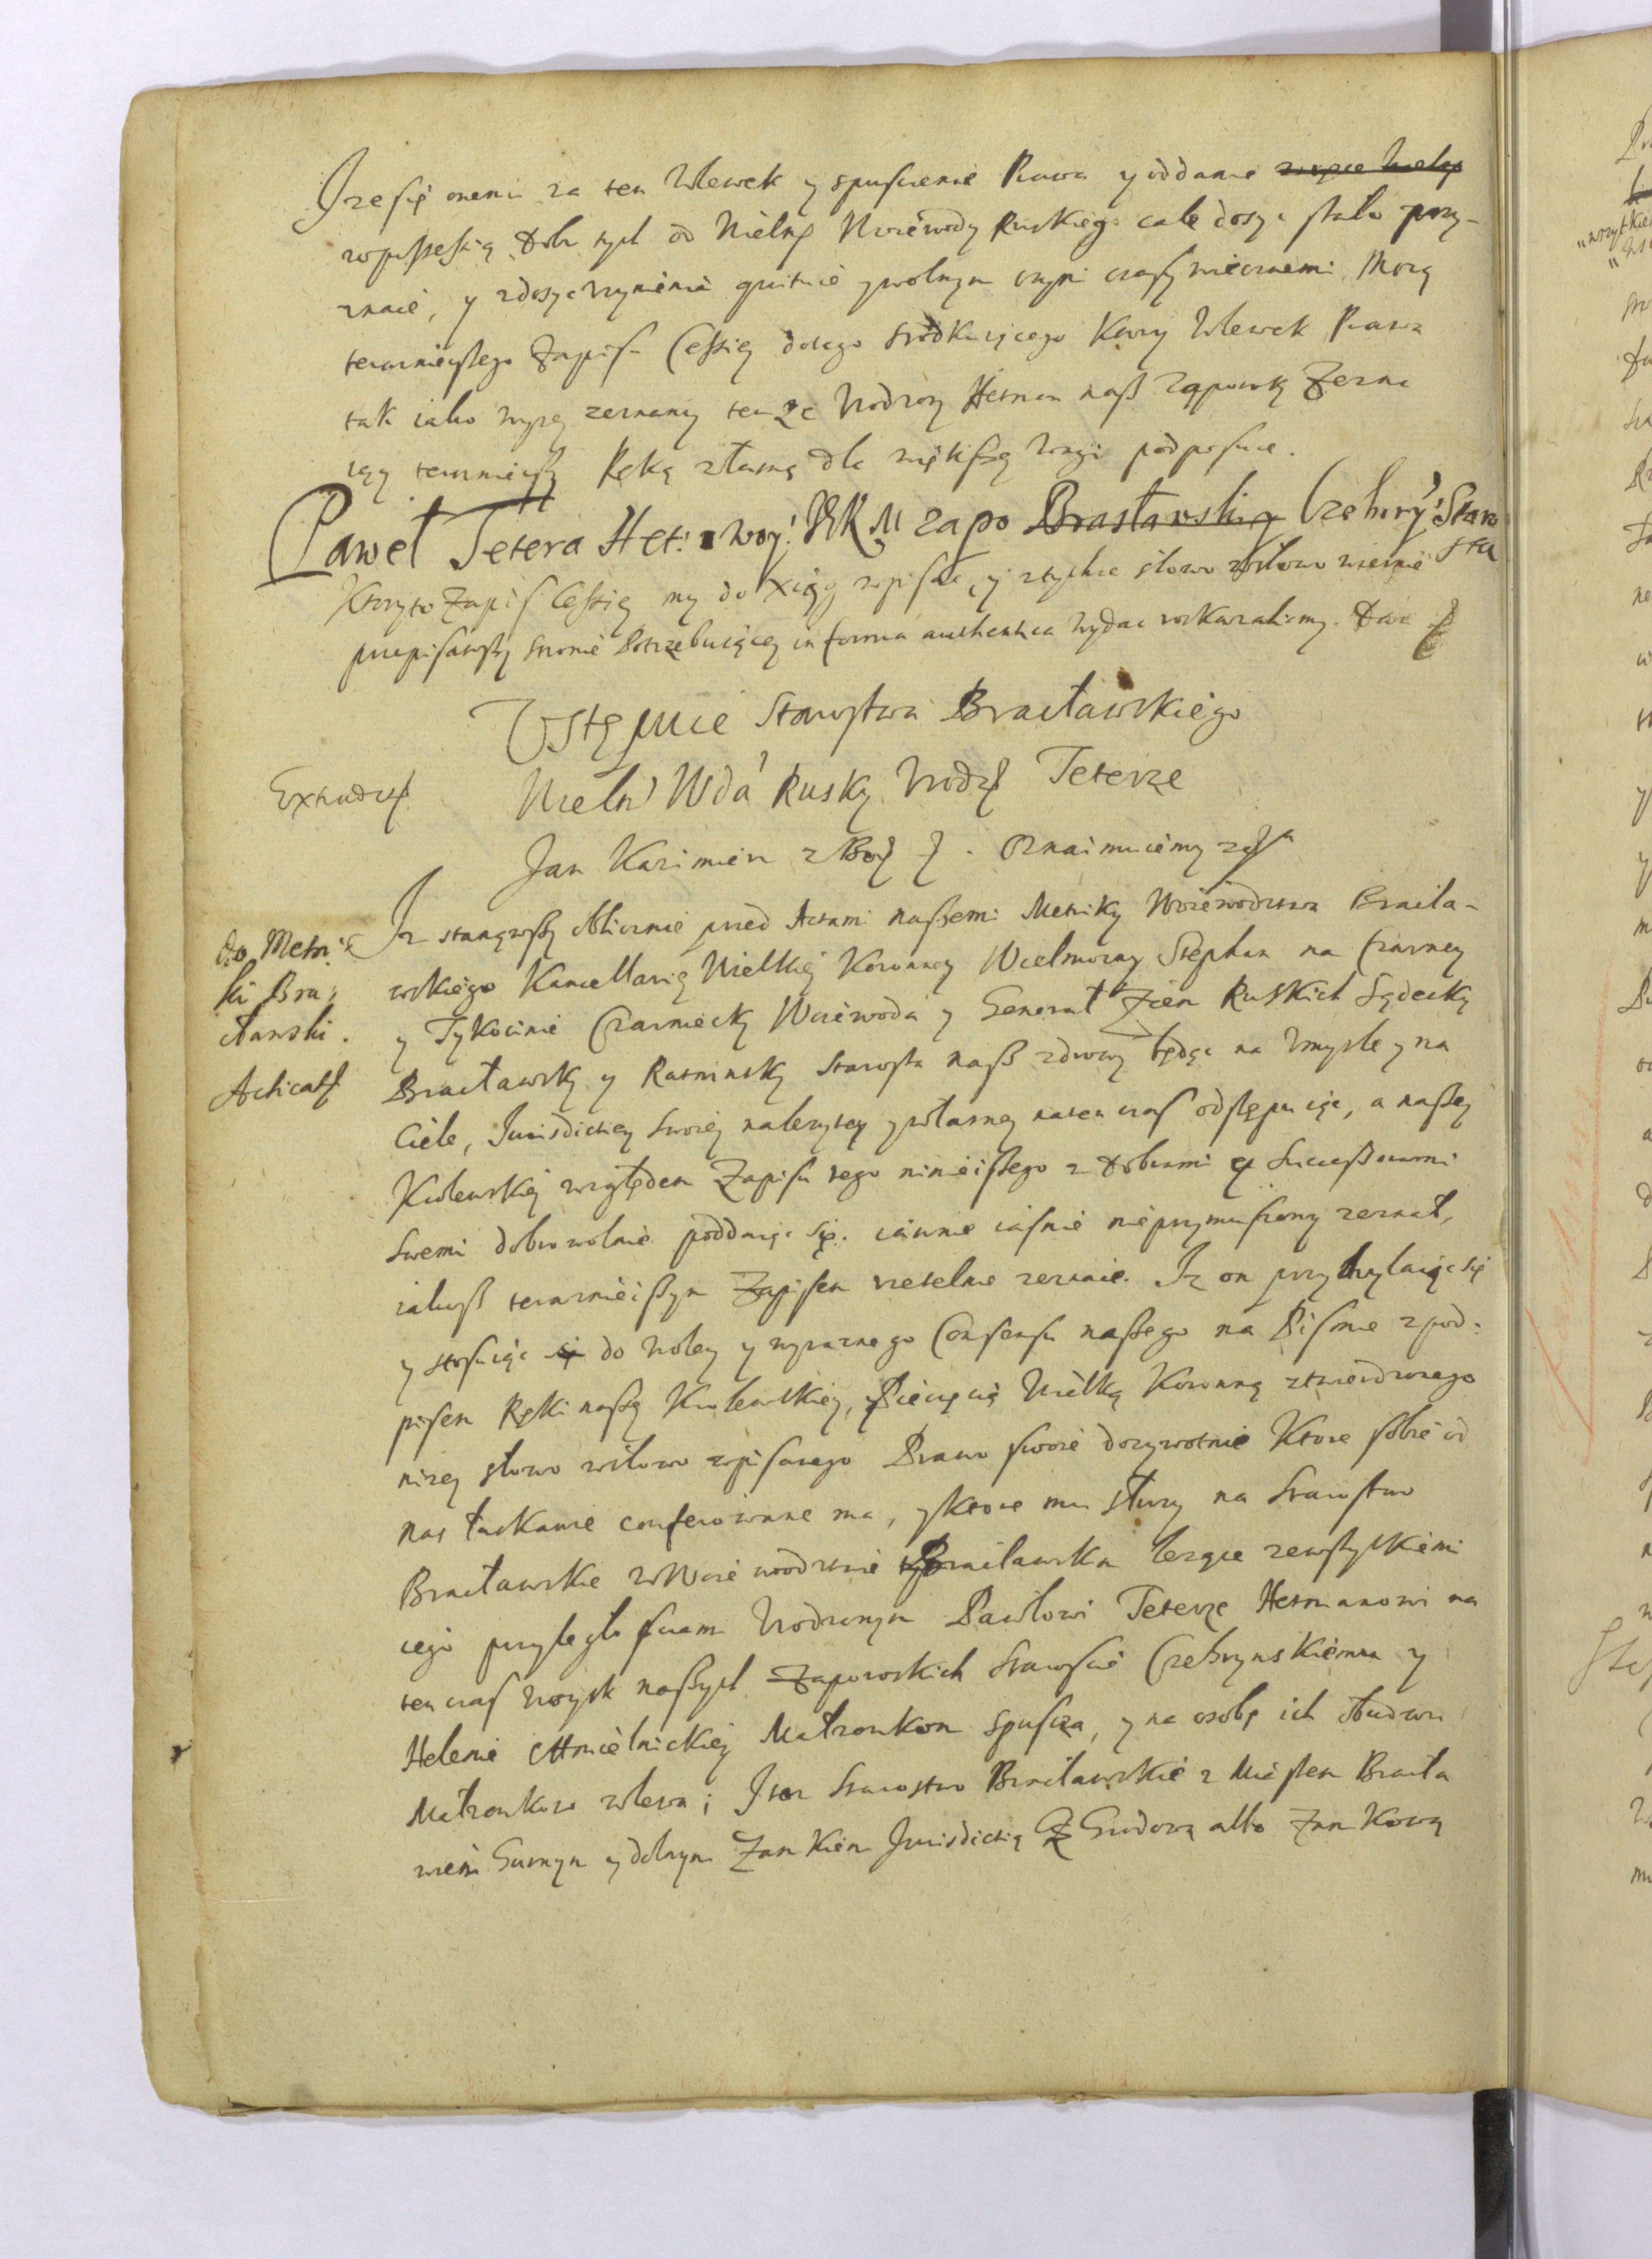 Iże się onemu za ten Wlewek y spuszczenie Prawa y oddanie
w possessią Dobr tych od Wielmo Woiewody Ruskiego cale dosyc stało przy-
znaie, y z dosyc uczynienia quituie y wolnym czyni czasy wiecznemi. Mocą
teraznieyszego Zapisu Cessiey do tego srodkuiącego Ktory Wlewek Prawa
tak iako wyzey zeznany tenze Urodzony Hetman nasz Zezna
ięcy teraznieyszy Ręką własną dla większey wagi podpisuie.
Paweł Tetera Het: woy: JKM zapo Brasławskiy Czehiry: Staro
sta
Ktoryto Zapis Cessiey my do Xiąg wpisac, y z tychze słowo w słowo wiernie
przepisawszy stronie Potrzebuiącey in forma authentica wydac roskazalismy. Dan
Ustępuie Starostwa Bracławskiego
Wieln Wda Rusky Urodz Teterze
Extradit
Jan Kazimierz z Boz. Oznaimuiemy
Iz stanąwszy oblicznie przed Actami naszemi Metriky Woiewodztwa Bracła-
do Metri
ki Bra:
cławski.
Acticat
wskiego Kancellariey Wielkiey Koronney Wielmozny Stephan na Czarncy
y Tykocinie Czarniecky Woiewoda y Generał Ziem Ruskich Sądecky
Bracławsky y Ratninsky Starosta nasz zdrowy będąc na Umysle y na
Ciele, Jurisdictiey swoiey nalezytey y własney naten czas odstępuiąc, a naszey
Krolewskiey względem Zapisu tego ninieiszego z Dobrami y Successorami
swemi dobrowolnie poddaiąc się. iawnie iasnie nieprzymuszony zeznał,
iakosz teraznieiszym Zapisem rzetelnie zeznaie. Iz on przychylaiąc się
y stosuiąc się do woley y wyraznego Consensu naszego na Pismie z pod-
pisem Ręki naszey Krolewskiey, Pieczęcią Wielką Koronną ztwierdzonego
nizey słowo w słowo wpisanego Prawo swoie dozywotnie Ktore sobie od
nas łaskawie conferowane ma, y ktore mu słuzy na Starostwo
Bracławskie w Woiewodztwie Bracławskim lezące ze wszytkiemi
iego przyległosciami Urodzonym Pawłowi Teterze Hetmanowi na
ten czas woysk naszych Zaporoskich Staroscie Czehrynskiemu y
Helenie Chmielnickiey Małzonkom spuszcza, y na osobę ich obudwu
Małzonkow wlewa; Item Starostwo Bracławskie z Miastem Bracła
wiem Gurnym y dolnym Zamkiem Jurisdictią Grodową albo Zamkową